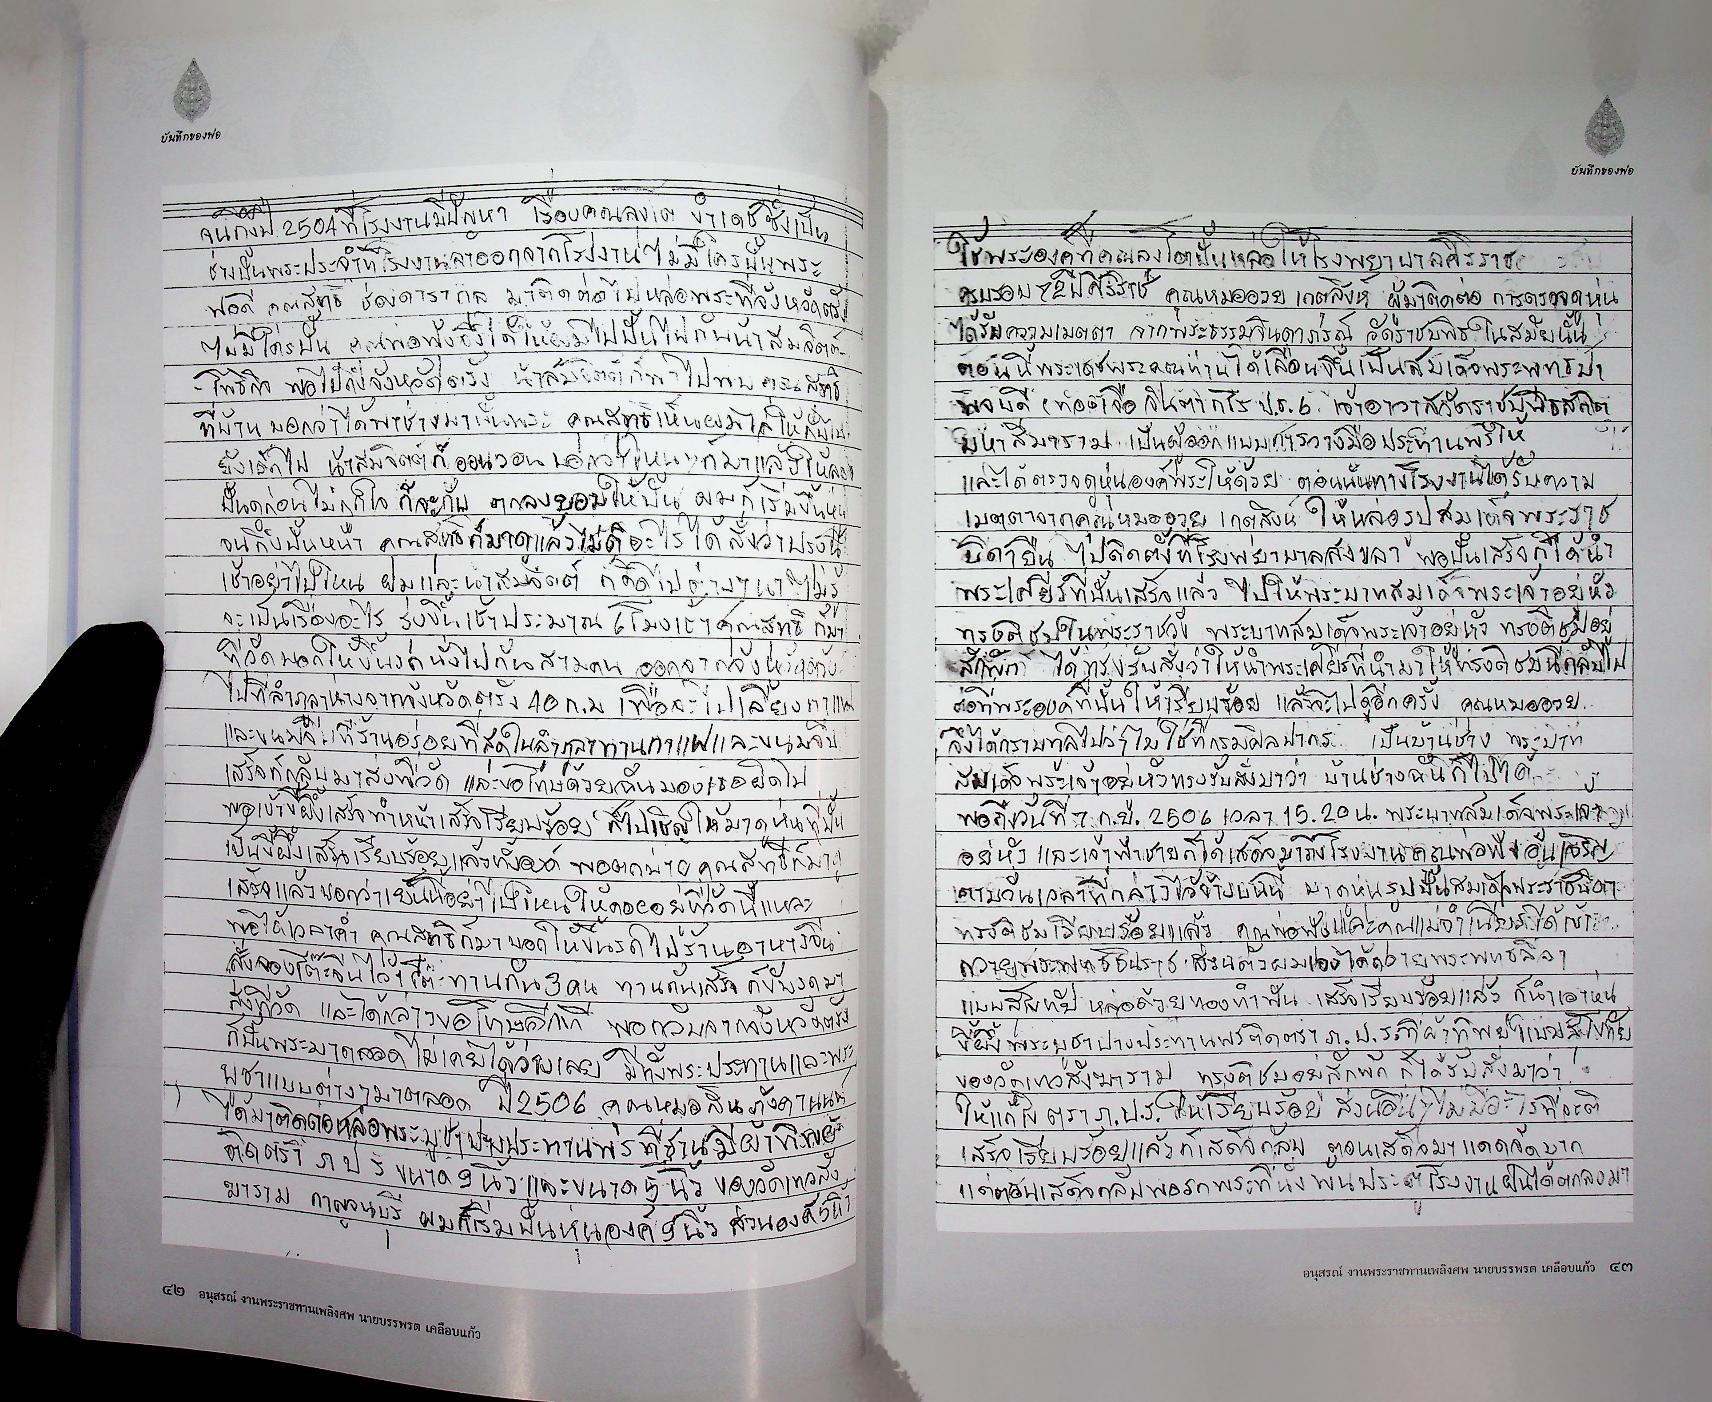 บันทึกของพ่อ
จนถึงปี 2504 ที่โรงงานมีปัญหา เรื่องคุณลิขิต ขำเดช ซึ่งเป็น
ช่างปั้นพระประจำที่โรงงานลาออกจากโรงงาน ไม่มีใครปั้นพระ
พอดี คุณสุทธิ มาติดต่อไปหล่อพระที่จังหวัดตรัง
ไม่มีใครปั้น คุณพ่อฟุ้งจึงได้ให้ผมไปปั้นไปกับน้าสมจิตต์
พอไปถึงจังหวัดตรัง น้าสมจิตต์ก็พาไปพบคุณสุทธิ
ที่บ้าน บอกว่าได้พาช่างมาปั้นพระ คุณสุทธิเห็นผมไม่ให้ปั้น
ยังเด็กไป น้าสมจิตต์ก็อ้อนวอน บอกว่าไหนๆ ก็มาแล้วให้ลอง
ปั้นดูก่อนไม่ถูกใจ ก็จะกลับ ตกลงยอมให้ปั้น ผมก็เริ่มขึ้นหุ่น
จนถึงปั้นหน้า คุณสุทธิก็มาดูแล้วไม่ติอะไร ได้สั่งว่าพรุ่งนี้
เช้าอย่าไปไหน ผมและน้าสมจิตต์ ก็คิดไปต่างๆ นาๆ ไม่รู้
จะเป็นเรื่องอะไร รุ่งขึ้นเช้าประมาณ 6 โมงเช้า คุณสุทธิ ก็มา
ที่วัดบอกให้ขึ้นรถนั่งไปกันสามคน ออกจากจังหวัดตรัง
ไปที่ลำภูลาห่างจากจังหวัดตรัง 40 ก.ม เพื่อจะไปเลี้ยงกาแฟ
และขนมจีบที่ร้านอร่อยที่สุดในลำภูลาทานกาแฟและขนมจีบ
เสร็จก็กลับมาส่งที่วัด และขอโทษด้วยฉันมองเธอผิดไป
พอเข้าขี้ผึ้งเสร็จทำหน้าเสร็จเรียบร้อย ก็ไปเชิญให้มาดูหุ่นที่ปั้น
เป็นขี้ผึ้งเสร็จเรียบร้อยแล้วทั้งองค์ พอตกบ่าย คุณสุทธิก็มาดู
เสร็จแล้วบอกว่าเย็นนี้อย่าไปไหน ให้คอยอยู่ที่วัดนี้แหละ
พอได้เวลาค่ำ คุณสุทธิก็มาบอกให้ขึ้นรถไปร้านอาหารจีน
สั่งจองโต๊ะจีนไว้ 1 โต๊ะ ทานกัน 3 คน ทานกันเสร็จ ก็ขับรถมา
ส่งที่วัด และได้กล่าวขอโทษอีกที พอกลับจากจังหวัดตรัง
ก็ปั้นพระมาตลอดไม่เคยได้ว่างเลย มีทั้งพระประธานและพระ
บูชาแบบต่างๆ มาตลอด ปี 2506 คุณหมอสิน
ได้มาติดต่อหล่อพระบูชาปางประทานพรที่ฐานมีผ้าทิพย์
ติดตรา ภ ป ร ขนาด 9 นิ้ว และขนาด 5 นิ้ว ของวัดเทวสัง
ฆาราม กาญจนบุรี ผมก็เริ่มปั้นหุ่นองค์ 9 นิ้ว ส่วนองค์ 5 นิ้ว
๔๒ อนุสรณ์ งานพระราชทานเพลิงศพ นายบรรพรต เคลือบแก้ว
บันทึกของพ่อ
ใช้พระองค์ที่คุณลงโตปั้นหล่อให้โรงพยาบาลศิริราช
ครบรอบ 72 ปีศิริราช คุณหมออวย เกตุสิงห์ ผู้มาติดต่อ การตรวจดูหุ่น
ได้รับความเมตตา จากพระธรรมจินดาภรณ์ วัดราชบพิธ ในสมัยนั้น
ตอนนี้พระเดชพระคุณท่านได้เลื่อนขึ้นเป็นสมเด็จพระพุทธปา
พจนบดี (ทองเจือ จินตากโร ป.ธ. 6. เจ้าอาวาสวัดราชบพิธสถิต
มหาสีมาราม เป็นผู้ออกแบบการวางมือประทานพรให้
และได้ตรวจดูหุ่นองค์พระให้ด้วย ตอนนั้นทางโรงงานได้รับความ
เมตตาจากคุณหมออวย เกตุสิงห์ ให้หล่อรูปสมเด็จพระราช
บิดายืน ไปติดตั้งที่โรงพยาบาลสงขลา พอปั้นเสร็จก็ได้นำ
พระเศียรที่ปั้นเสร็จแล้ว ไปให้พระบาทสมเด็จพระเจ้าอยู่หัว
ทรงติชมในพระราชวัง พระบาทสมเด็จพระเจ้าอยู่หัว ทรงติชมอยู่
สักพัก ได้ทรงรับสั่งว่าให้นำพระเศียรที่นำมาให้ทรงติชมนี้กลับไป
ต่อที่พระองค์ที่ปั้นให้เรียบร้อย แล้วจะไปดูอีกครั้ง คุณหมออวย
จึงได้กราบทูลไปว่าไม่ใช่ที่กรมศิลปากร เป็นบ้านช่าง พระบาท
สมเด็จพระเจ้าอยู่หัวทรงรับสั่งมาว่า บ้านช่างฉันก็ไปได้
พอถึงวันที่ 7 ก.ย. 2506 เวลา 15.20 น. พระบาทสมเด็จพระเจ้า
อยู่หัว และเจ้าฟ้าชายก็ได้เสด็จมาถึงโรงงานคุณพ่อฟุ้ง อ้นเจริญ
ตามวันเวลาที่กล่าวไว้ข้างบนนี้ มาดูหุ่นรูปปั้นสมเด็จพระราชบิดา
ทรงติชมเรียบร้อยแล้ว คุณพ่อฟุ้งและคุณแม่จำเนียรได้เข้า
ถวายพระพุทธชินราช ส่วนตัวผมเองได้ถวายพระพุทธลีลา
แบบสุโขทัย หล่อด้วยทองทำฟัน เสร็จเรียบร้อยแล้ว ก็นำเอาหุ่น
ขี้ผึ้งพระบูชาปางประทานพรติดตรา ภ.ป.ร. ที่ผ้าทิพย์แบบสุโขทัย
ของวัดเทวสังฆาราม ทรงติชมอยู่สักพัก ก็ได้รับสั่งมาว่า
ให้แก้ไขตรา ภ.ป.ร. ให้เรียบร้อย ส่วนอื่นๆ ไม่มีอะไรที่จะติ
เสร็จเรียบร้อยแล้วก็เสด็จกลับ ตอนเสด็จมาแดดจัดมาก
แต่ตอนเสด็จกลับพอรถพระที่นั่งพ้นประตูโรงงานฝนได้ตกลงมา
อนุสรณ์ งานพระราชทานเพลิงศพ นายบรรพรต เคลือบแก้ว ๔๓